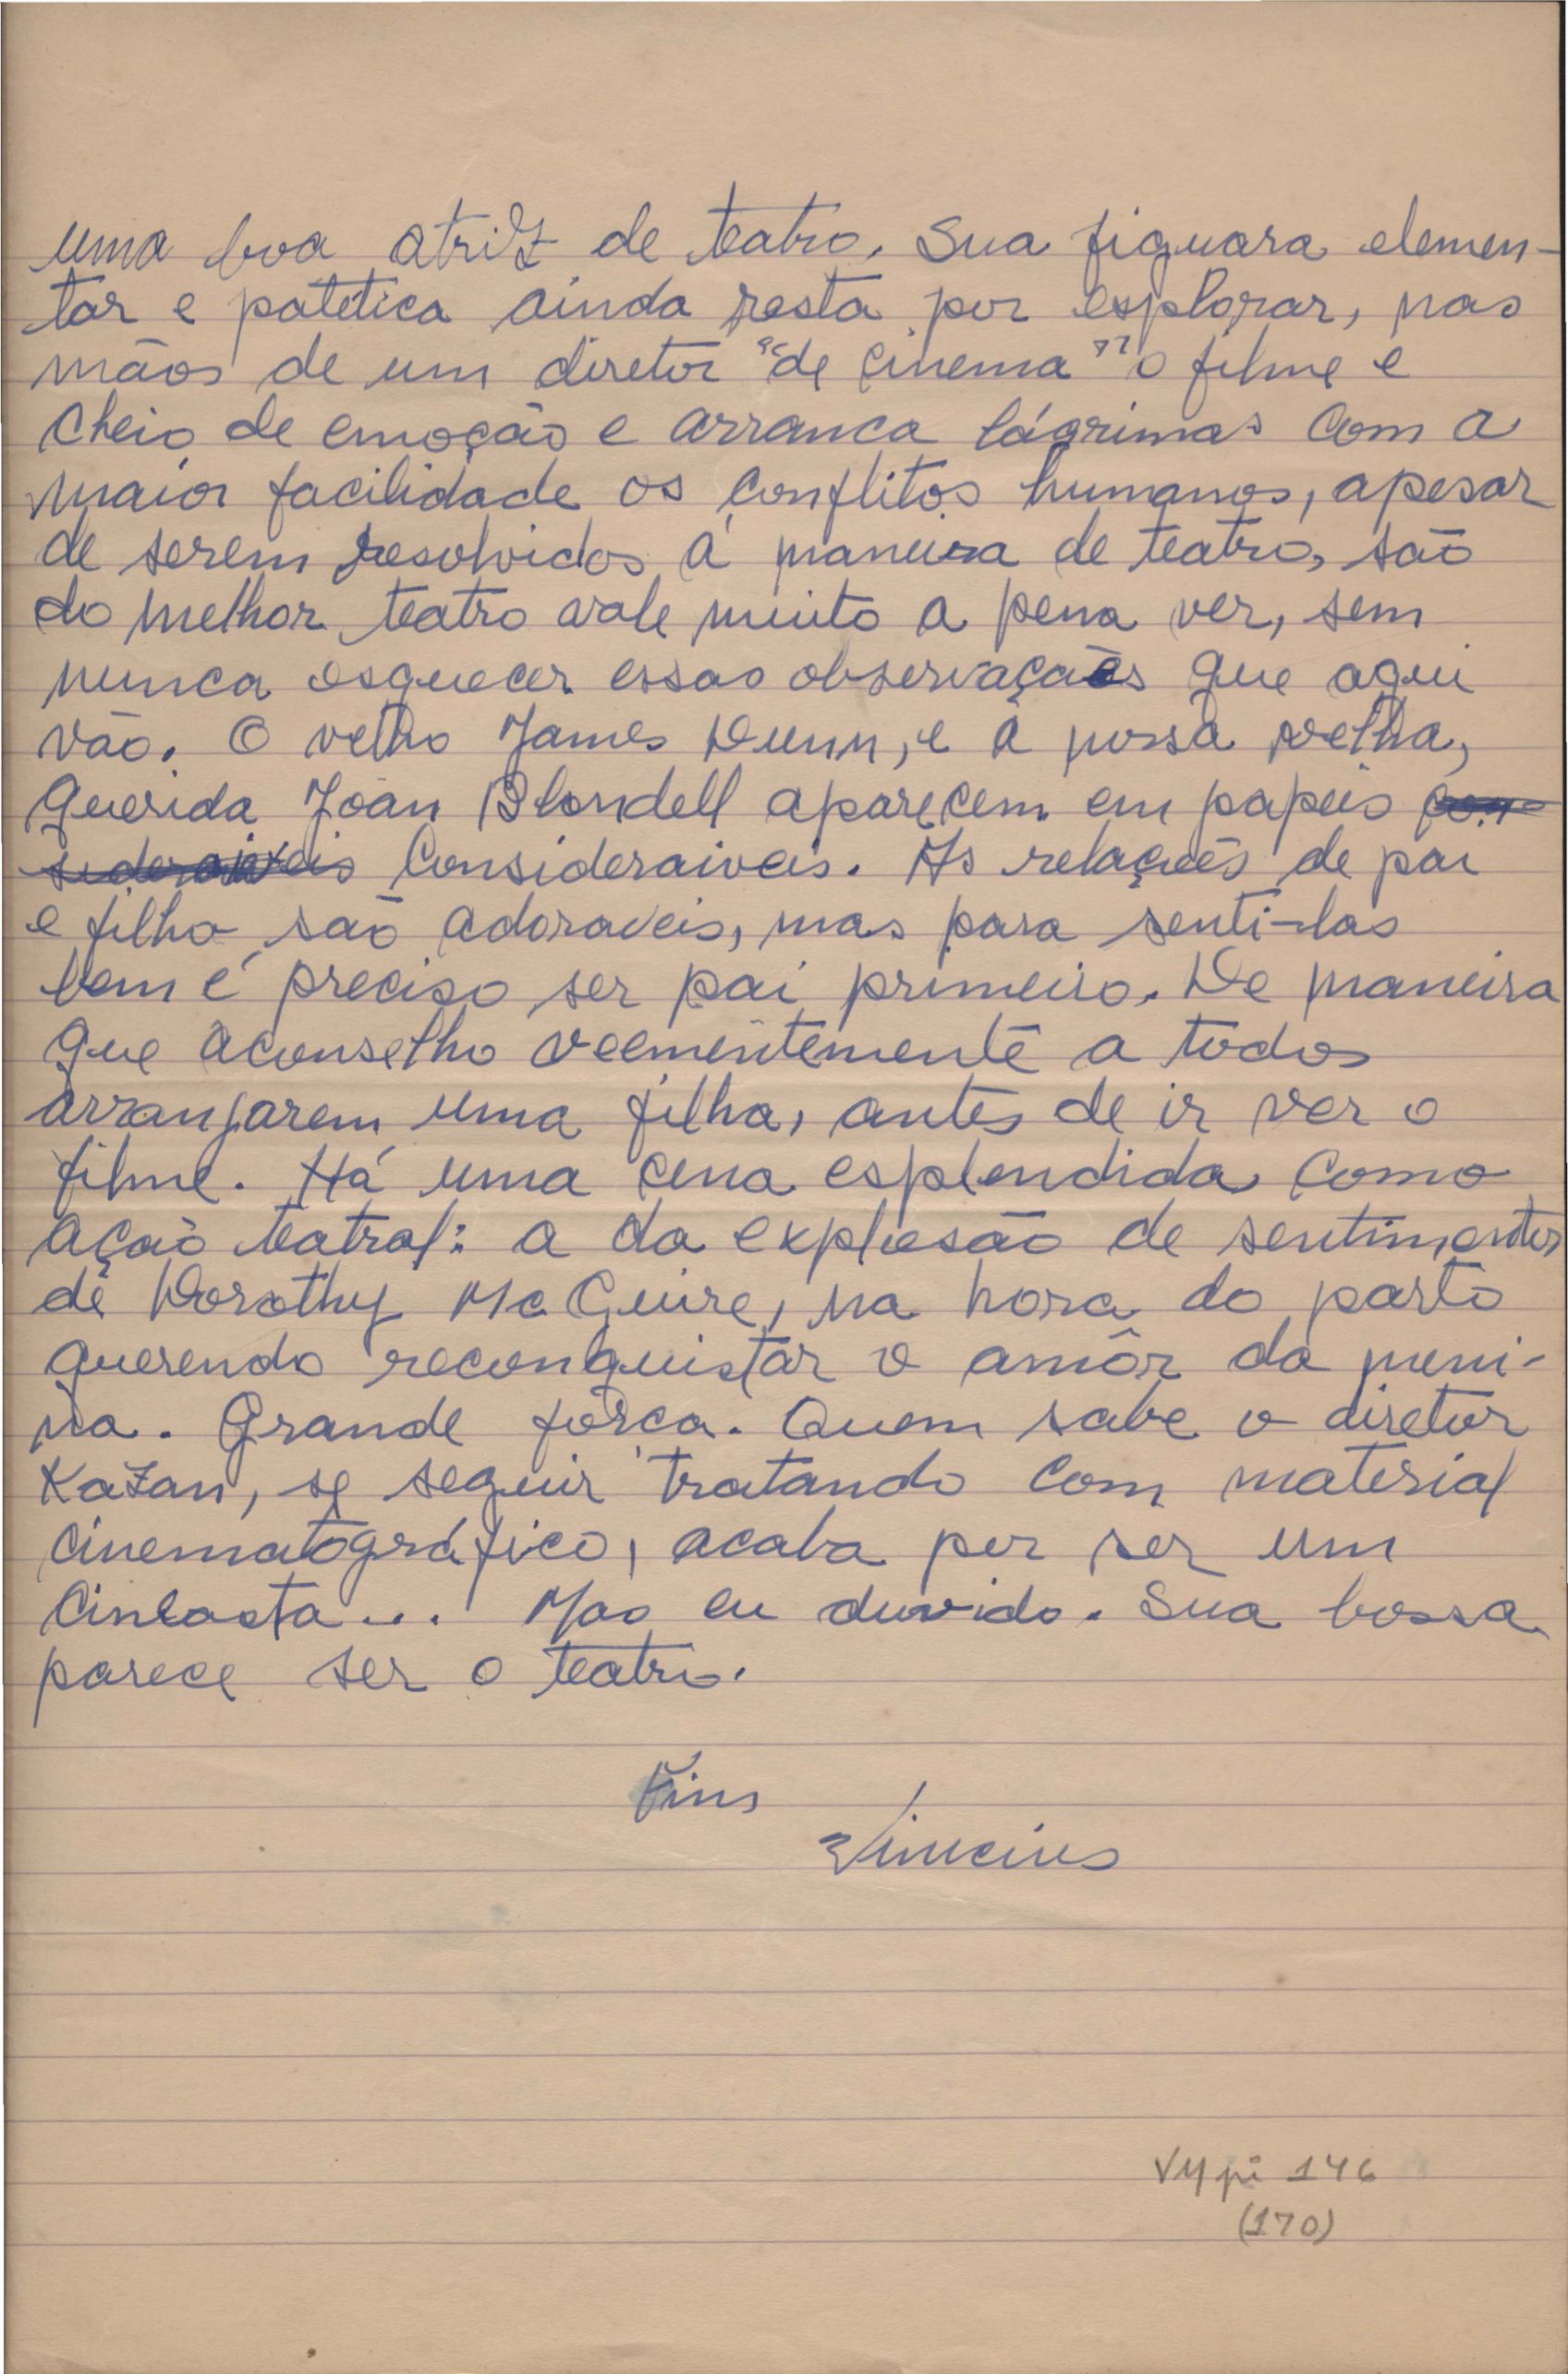 uma boa atriz de teatro. Sua figuara elemen-
tar e patética ainda resta por explorar, nas
mãos de um diretor "de cinema" o filme e
cheio de emoção e arranca lágrimas com a
maior facilidade os conflitos humanos, apesar
de serem resolvidos à maneira de teatro, são
do melhor teatro vale muito a pena ver, sem
nunca esquecer essas observaçães que aqui
vão. O velho James Dunn, e a nossa velha,
querida Joan Blondell aparecem em papeis con-
sideraiveis Consideraiveis. As relações de pai
e filha são adoraveis, mas para senti-las
bem é preciso ser pai primeiro. De maneira
que aconselho veementemente a todos
arranjarem uma filha, antes de ir ver o
filme. Há uma cena esplendida como
ação teatral: a da explosão de sentimentos
de Dorothy McGuire, na hora do parto
querendo reconquistar o amôr da meni-
na. Grande fôrça. Quem sabe o diretor
Kazan, se seguir tratando com material
cinematográfico, acaba por ser um
Cineasta... Mas eu duvido. Sua bossa
parece ser o teatro.
Fins
Vinicius
VM pi 146
(170)